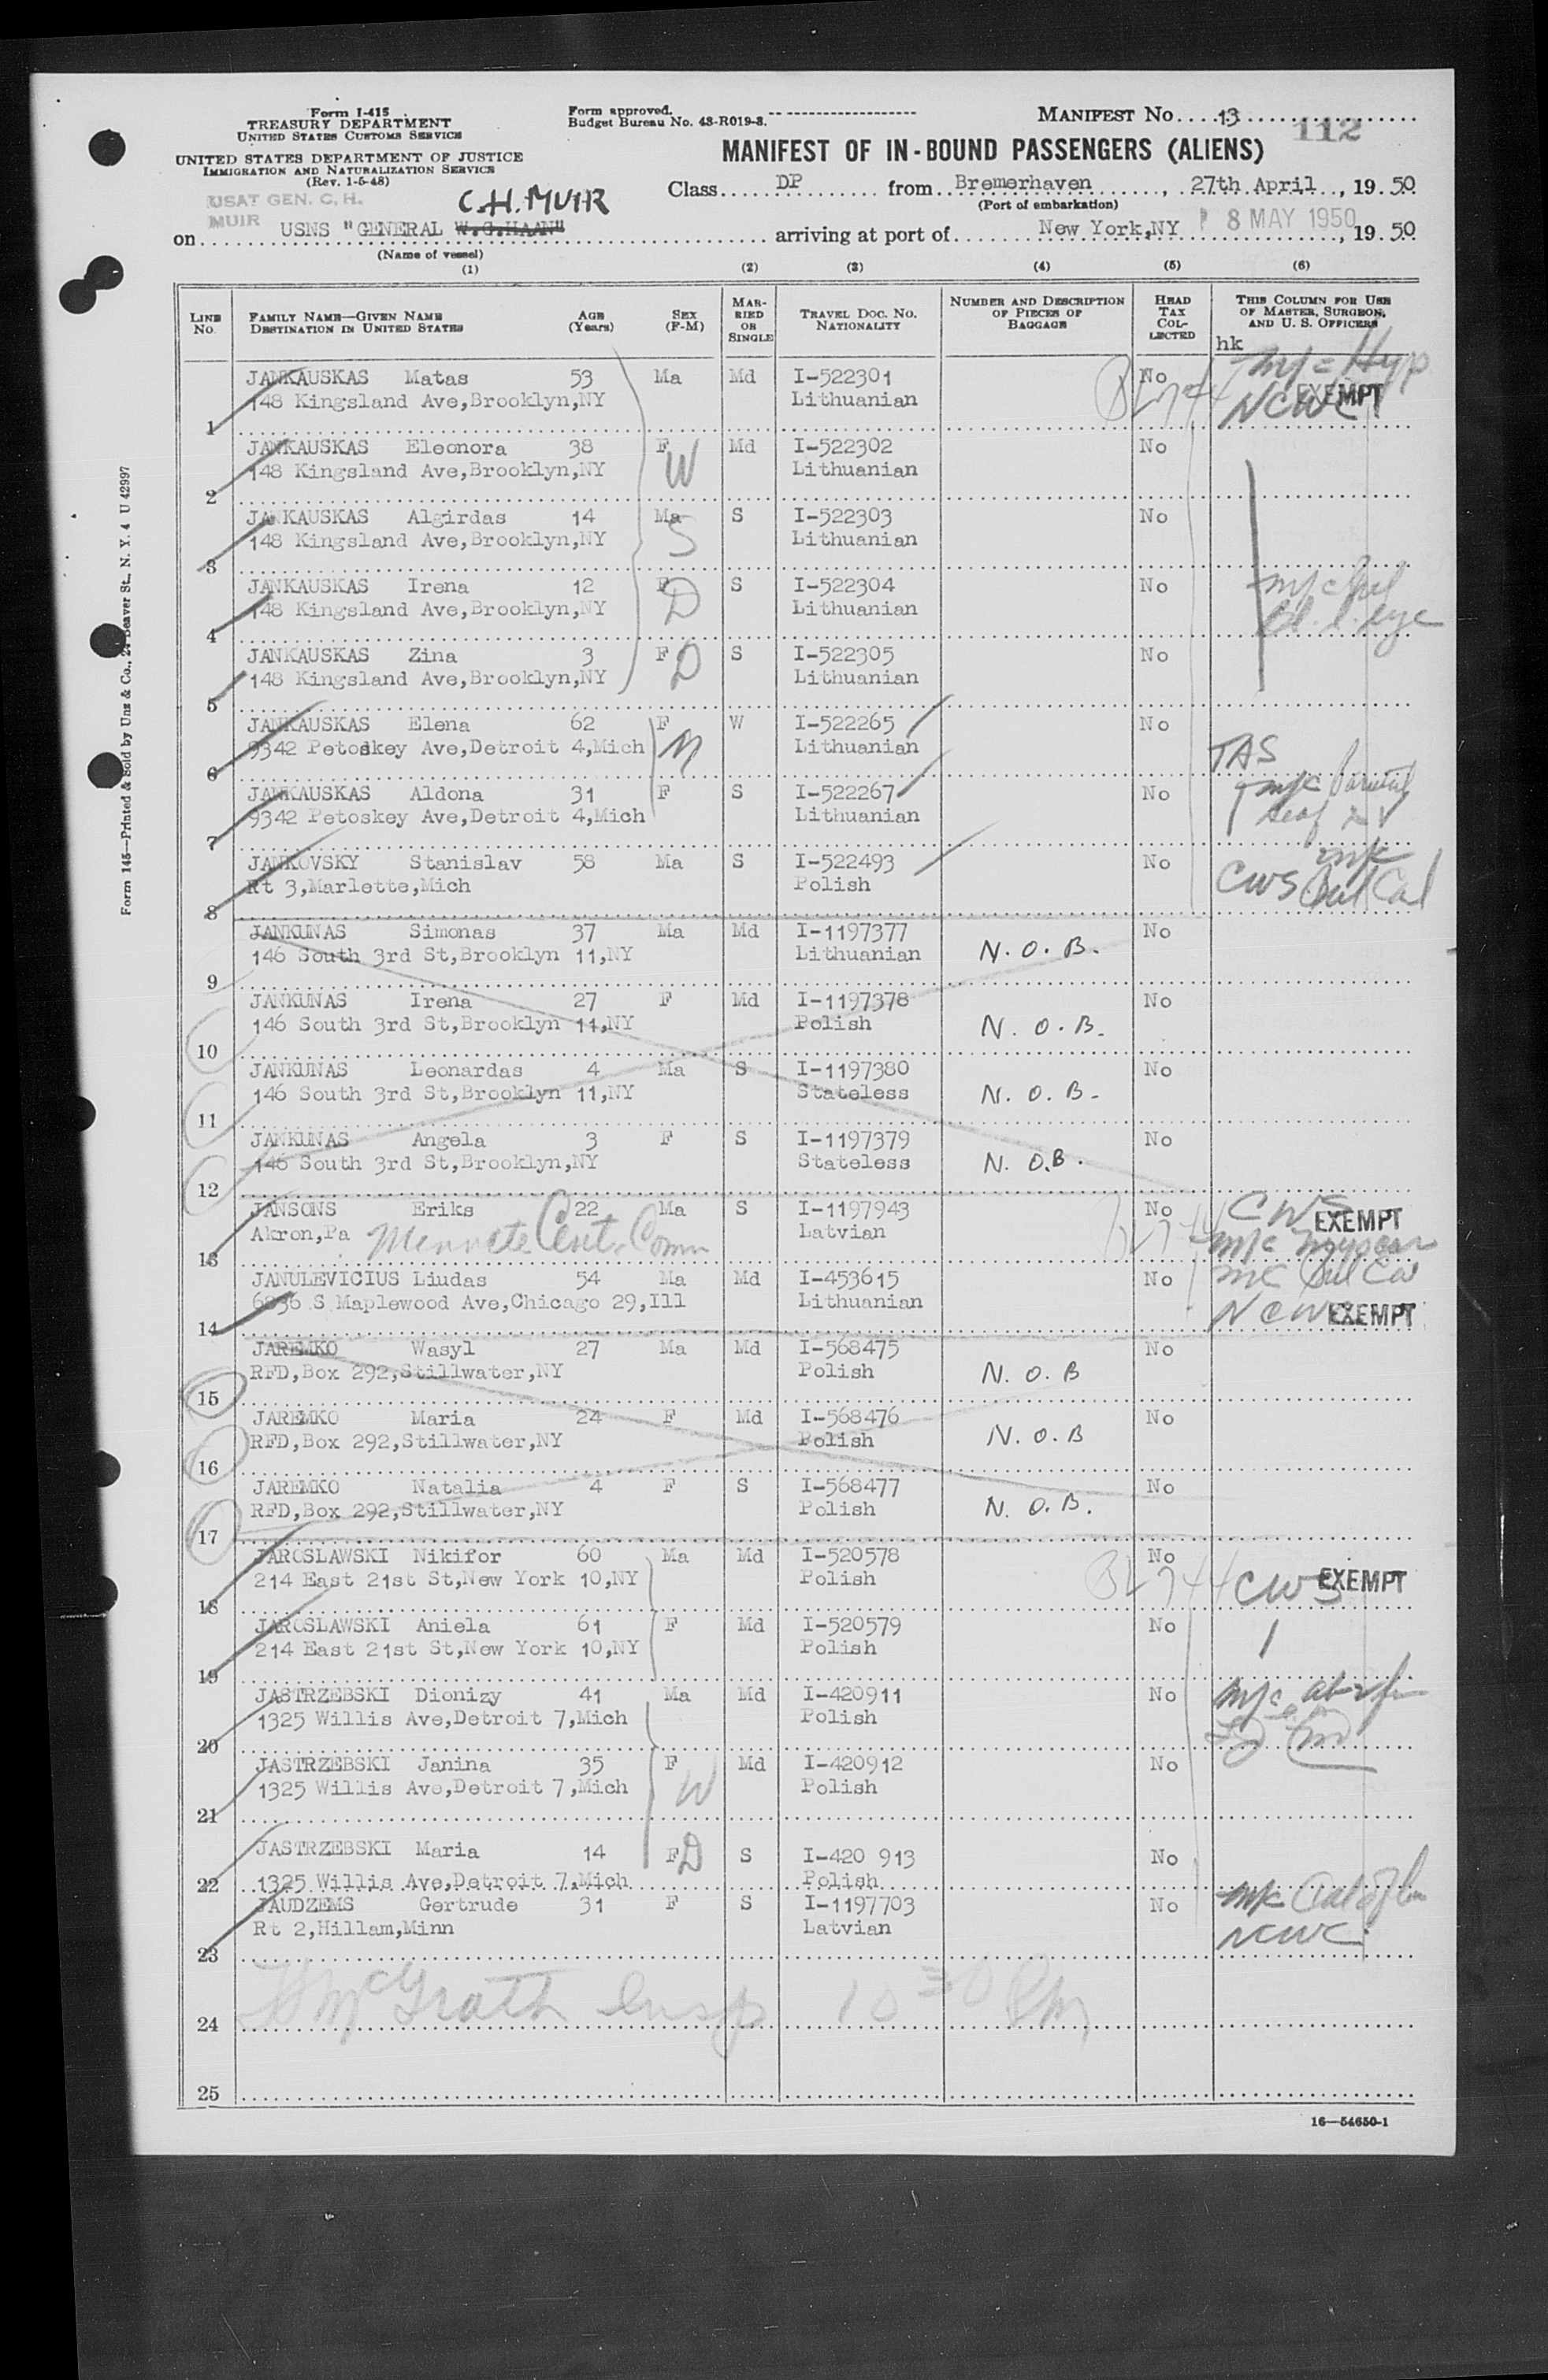 Form I-415
TREASURY DEPARTMENT
UNITED STATES CUSTOMS SERVICE
UNITED STATES DEPARTMENT OF JUSTICE
IMMIGRATION AND NATURALIZATION SERVICE
(Rev. 1-5-48)
Form approved.
Budget Bureau No. 43-R019-3.
MANIFEST No. 13
112
MANIFEST OF IN-BOUND PASSENGERS (ALIENS)
Class DP from Bremerhaven, 27th April, 1950
(Port of embarkation)
USAT GEN. C. H. MUIR
C.H. MUIR
on USNS "GENERAL W.G.HAAN" arriving at port of New York,NY 8 MAY 1950, 1950
(Name of vessel)
(1) (2) (3) (4) (5) (6)
LINE No. FAMILY NAME—GIVEN NAME DESTINATION IN UNITED STATES AGE (Years) SEX (F-M) MARRIED OR SINGLE TRAVEL DOC. NO. NATIONALITY NUMBER AND DESCRIPTION OF PIECES OF BAGGAGE HEAD TAX COLLECTED THIS COLUMN FOR USE OF MASTER, SURGEON, AND U. S. OFFICERS
hk
JANKAUSKAS Matas 53 Ma Md I-522301 No EXEMPT
1 148 Kingsland Ave,Brooklyn,NY Lithuanian NCWC
JANKAUSKAS Eleonora 38 F Md I-522302 No
2 148 Kingsland Ave,Brooklyn,NY W Lithuanian
JANKAUSKAS Algirdas 14 Ma S I-522303 No
3 148 Kingsland Ave,Brooklyn,NY S Lithuanian
JANKAUSKAS Irena 12 F S I-522304 No
4 148 Kingsland Ave,Brooklyn,NY D Lithuanian
JANKAUSKAS Zina 3 F D S I-522305 No
5 148 Kingsland Ave,Brooklyn,NY Lithuanian
JANKAUSKAS Elena 62 F W I-522265 No
6 9342 Petoskey Ave,Detroit 4,Mich M Lithuanian TAS
JANKAUSKAS Aldona 31 F S I-522267 No
7 9342 Petoskey Ave,Detroit 4,Mich Lithuanian
JANKOVSKY Stanislav 58 Ma S I-522493 No
8 Rt 3,Marlette,Mich Polish CWS
JANKUNAS Simonas 37 Ma Md I-1197377 No
9 146 South 3rd St,Brooklyn 11,NY Lithuanian N. O. B.
JANKUNAS Irena 27 F Md I-1197378 No
10 146 South 3rd St,Brooklyn 11,NY Polish N. O. B.
JANKUNAS Leonardas 4 Ma S I-1197380 No
11 146 South 3rd St,Brooklyn 11,NY Stateless N. O. B.
JANKUNAS Angela 3 F S I-1197379 No
12 146 South 3rd St,Brooklyn,NY Stateless N. O.B.
JANSONS Eriks 22 Ma S I-1197943 No CWS EXEMPT
13 Akron,Pa Latvian
JANULEVICIUS Liudas 54 Ma Md I-453615 No
14 6836 S Maplewood Ave,Chicago 29,Ill Lithuanian NCWC EXEMPT
JAREMKO Wasyl 27 Ma Md I-568475 No
15 RFD,Box 292,Stillwater,NY Polish N. O. B
JAREMKO Maria 24 F Md I-568476 No
16 RFD,Box 292,Stillwater,NY Polish N. O. B
JAREMKO Natalia 4 F S I-568477 No
17 RFD,Box 292,Stillwater,NY Polish N. O. B.
JAROSLAWSKI Nikifor 60 Ma Md I-520578 No
18 214 East 21st St,New York 10,NY Polish CWS EXEMPT
JAROSLAWSKI Aniela 61 F Md I-520579 No
19 214 East 21st St,New York 10,NY Polish
JASTRZEBSKI Dionizy 41 Ma Md I-420911 No
20 1325 Willis Ave,Detroit 7,Mich Polish
JASTRZEBSKI Janina 35 F Md I-420912 No
21 1325 Willis Ave,Detroit 7,Mich W Polish
JASTRZEBSKI Maria 14 F D S I-420 913 No
22 1325 Willis Ave,Detroit 7,Mich Polish
JAUDZEMS Gertrude 31 F S I-1197703 No
23 Rt 2,Hillam,Minn Latvian NCWC
24 McGrath Insp 10 30 PM
25
16—54650-1
Form 145—Printed & Sold by Unz & Co., 24 Beaver St., N. Y. 4 U 42997